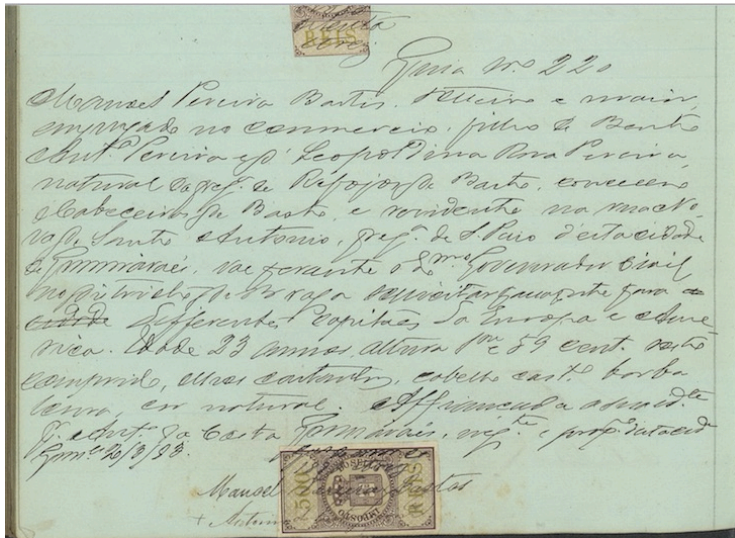 REIS
Guia Nº 220
Manoel Pereira Bastos, solteiro e maior,
empregado no commercio, filho de Bento
Antº Pereira e Leopoldina Rosa Pereira,
natural da freg. de Refojos de Basto, concelho
Cabeceiras de Basto, e residente na rua
de Santo Antonio, freg.ª de S. Paio d'esta cidade
de Guimarães. Vae perante o Governador Civil
no districto de Braga solicitar passaporte para
differentes Capitaes da Europa e Ame-
rica. Idade 23 annos, altura 1m e 59 cent. rosto
comprido, olhos castanhos, cabello cast.º barba
loura, cor natural. Affiançada a
Costa Guimarães, neg.te e
Guim.es
500 SELLO REIS
Manoel Bastos
+ Antonio